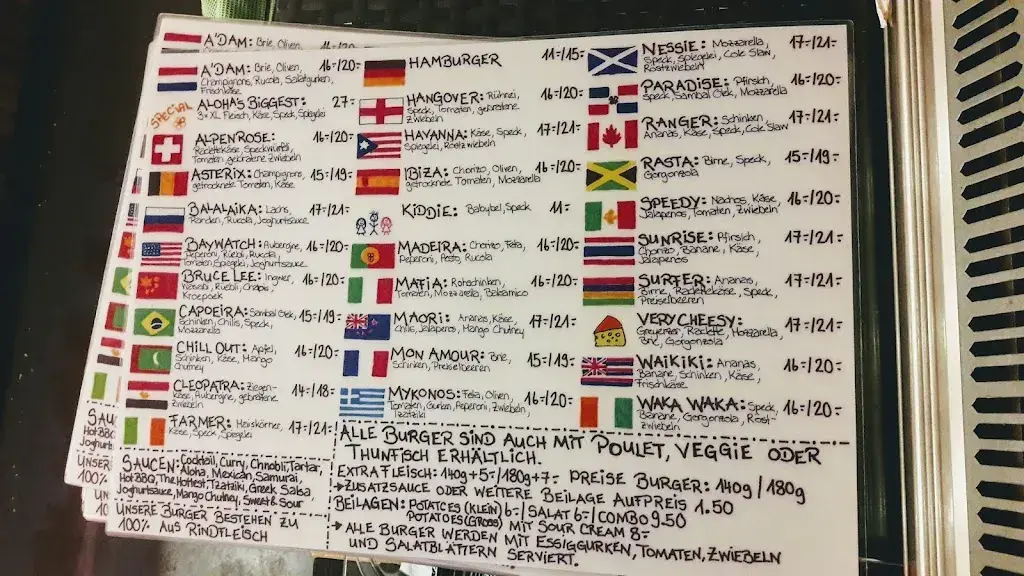 A'DAM: Brie, Oliven,
A'DAM: Brie, Oliven, 16=/20=
Champignons, Rucola, Salatgurken,
Frischkäse
SPECIAL
ALOHA'S BIGGEST: 27=
3x XL Fleisch, Käse, Speck, Spiegelei
ALPENROSE: 16=/20=
Raclettekäse, Speckwürfel,
Tomaten, gebratene Zwiebeln
ASTERIX: Champignons, 15=/19=
getrocknete Tomaten, Käse
BALALAIKA: Lachs, 17=/21=
Randen, Rucola, Joghurtsauce
BAYWATCH: Aubergine, 16=/20=
Peperoni, Rüebli, Rucola,
Tomaten, Spiegelei, Joghurtsauce
BRUCE LEE: Ingwer, 16=/20=
Wasabi, Rüebli, Chabis,
Kroepoek
CAPOEIRA: Sambal Olek, 15=/19=
Schinken, Chilis, Speck,
Mozzarella
CHILL OUT: Apfel, 16=/20=
Schinken, Käse, Mango
Chutney
CLEOPATRA: Ziegen- 14=/18=
käse, Aubergine, gebratene
Zwiebeln
FARMER: Heisskörner, 17=/21=
Käse, Speck, Spiegelei
SAUCEN: Cocktail, Curry, Chnobli, Tartar,
Aloha, Mexican, Samurai,
Hot BBQ, The Hottest, Tzatziki, Greek Salsa
Joghurtsauce, Mango Chutney, Sweet & Sour
UNSERE BURGER BESTEHEN ZU
100% AUS RINDFLEISCH
HAMBURGER 11=/15=
HANGOVER: Rührei, 16=/20=
Speck, Tomaten, gebratene
Zwiebeln
HAVANNA: Käse, Speck, 17=/21=
Spiegelei, Röstzwiebeln
IBIZA: Chorizo, Oliven, 16=/20=
getrocknete Tomaten, Mozzarella
KIDDIE: Babybel, Speck 11=
MADEIRA: Chorizo, Feta, 16=/20=
Peperoni, Pesto, Rucola
MAFIA: Rohschinken, 16=/20=
Tomaten, Mozzarella, Balsamico
MAORI: Ananas, Käse, 17=/21=
Chilis, Jalapenos, Mango Chutney
MON AMOUR: Brie, 15=/19=
Schinken, Preiselbeeren
MYKONOS: Feta, Oliven, 16=/20=
Tomaten, Gurken, Peperoni, Zwiebeln,
Tzatziki
NESSIE: Mozzarella, 17=/21=
Speck, Spiegelei, Cole Slaw,
Röstzwiebeln
PARADISE: Pfirsich, 16=/20=
Speck, Sambal Olek, Mozzarella
RANGER: Schinken, 17=/21=
Ananas, Käse, Speck, Cole Slaw
RASTA: Birne, Speck, 15=/19=
Gorgonzola
SPEEDY: Nachos, Käse, 16=/20=
Jalapenos, Tomaten, Zwiebeln
SUNRISE: Pfirsich, 17=/21=
Chorizo, Banane, Käse,
Jalapenos
SURFER: Ananas, 17=/21=
Birne, Raclettekäse, Speck,
Preiselbeeren
VERY CHEESY: 17=/21=
Greyerzer, Raclette, Mozzarella,
Brie, Gorgonzola
WAIKIKI: Ananas, 16=/20=
Banane, Schinken, Käse,
Frischkäse
WAKA WAKA: Speck, 16=/20=
Banane, Gorgonzola, Röst-
zwiebeln
ALLE BURGER SIND AUCH MIT POULET, VEGGIE ODER
THUNFISCH ERHÄLTLICH.
EXTRA FLEISCH: 140g +5=/180g +7= PREISE BURGER: 140g/180g
→ ZUSATZSAUCE ODER WEITERE BEILAGE AUFPREIS 1.50
BEILAGEN: POTATOES (KLEIN) 6=/SALAT 6=/COMBO 9.50
POTATOES (GROSS) MIT SOUR CREAM 8=
→ ALLE BURGER WERDEN MIT ESSIGGURKEN, TOMATEN, ZWIEBELN
UND SALATBLÄTTERN SERVIERT.